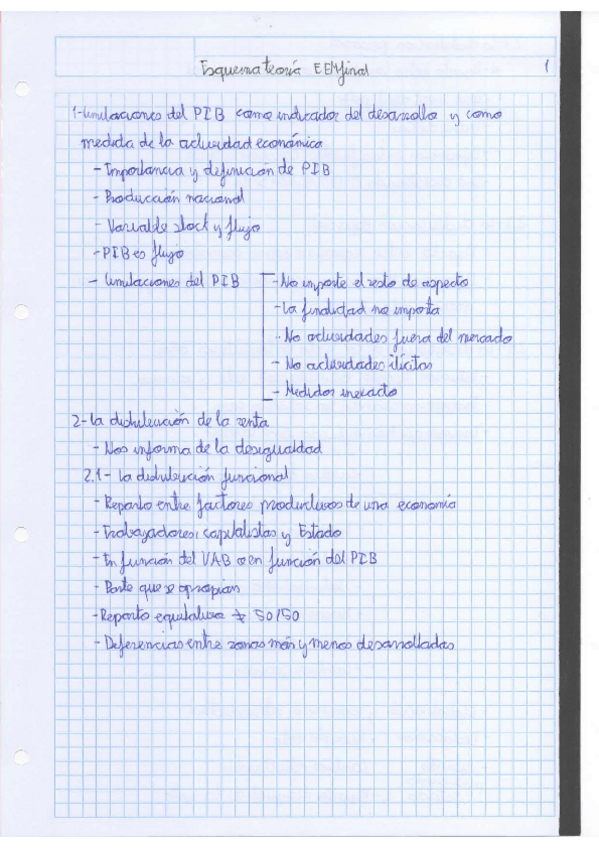 Esquema teoría EEM final 1
1-Limitaciones del PIB como indicador del desarrollo y como
medida de la actividad económica
- Importancia y definición de PIB
- Producción nacional
- Variable stock y flujo
- PIB es flujo
- Limitaciones del PIB - No importe el resto de aspecto
- La finalidad no importa
- No actividades fuera del mercado
- No actividades ilícitas
- Medidor inexacto
2- La distribución de la renta
- Nos informa de la desigualdad
2.1- La distribución funcional
- Reparto entre factores productivos de una economía
- Trabajadores, capitalistas y Estado
- En función del VAB o en función del PIB
- Parte que se apropian
- Reparto equitativo ≠ 50/50
- Deferencias entre zonas más y menos desarrolladas